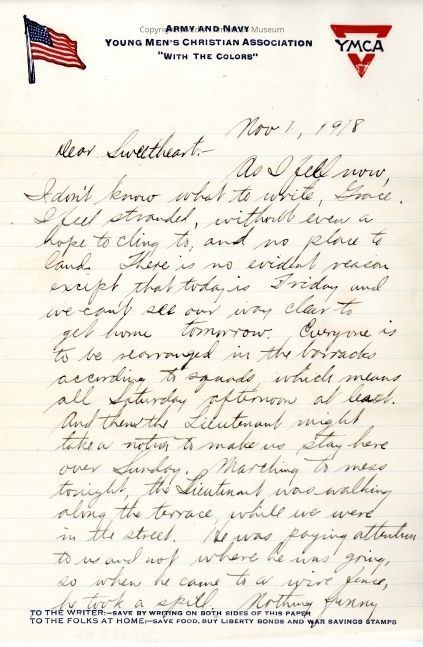 Copyright
Museum
ARMY AND NAVY
YOUNG MEN'S CHRISTIAN ASSOCIATION
"WITH THE COLORS"
YMCA
Nov 1, 1918
Dear Sweetheart:-
As I feel now,
I don't know what to write, Grace.
I feel stranded, without even a
hope to cling to, and no place to
land. There is no evident reason
except that today is Friday and
we can't see our way clear to
get home tomorrow. Everyone is
to be rearranged in the barracks
according to squads which means
all Saturday afternoon at least.
And then the Lieutenant might
take a notion to make us stay here
over Sunday. Marching to mess
tonight, the Lieutenant was walking
along the terrace, while we were
in the street. He was paying attention
to us and not where he was going,
so when he came to a wire fence,
he took a spill. Nothing funny
TO THE WRITER:-SAVE BY WRITING ON BOTH SIDES OF THIS PAPER
TO THE FOLKS AT HOME:-SAVE FOOD, BUY LIBERTY BONDS AND WAR SAVINGS STAMPS